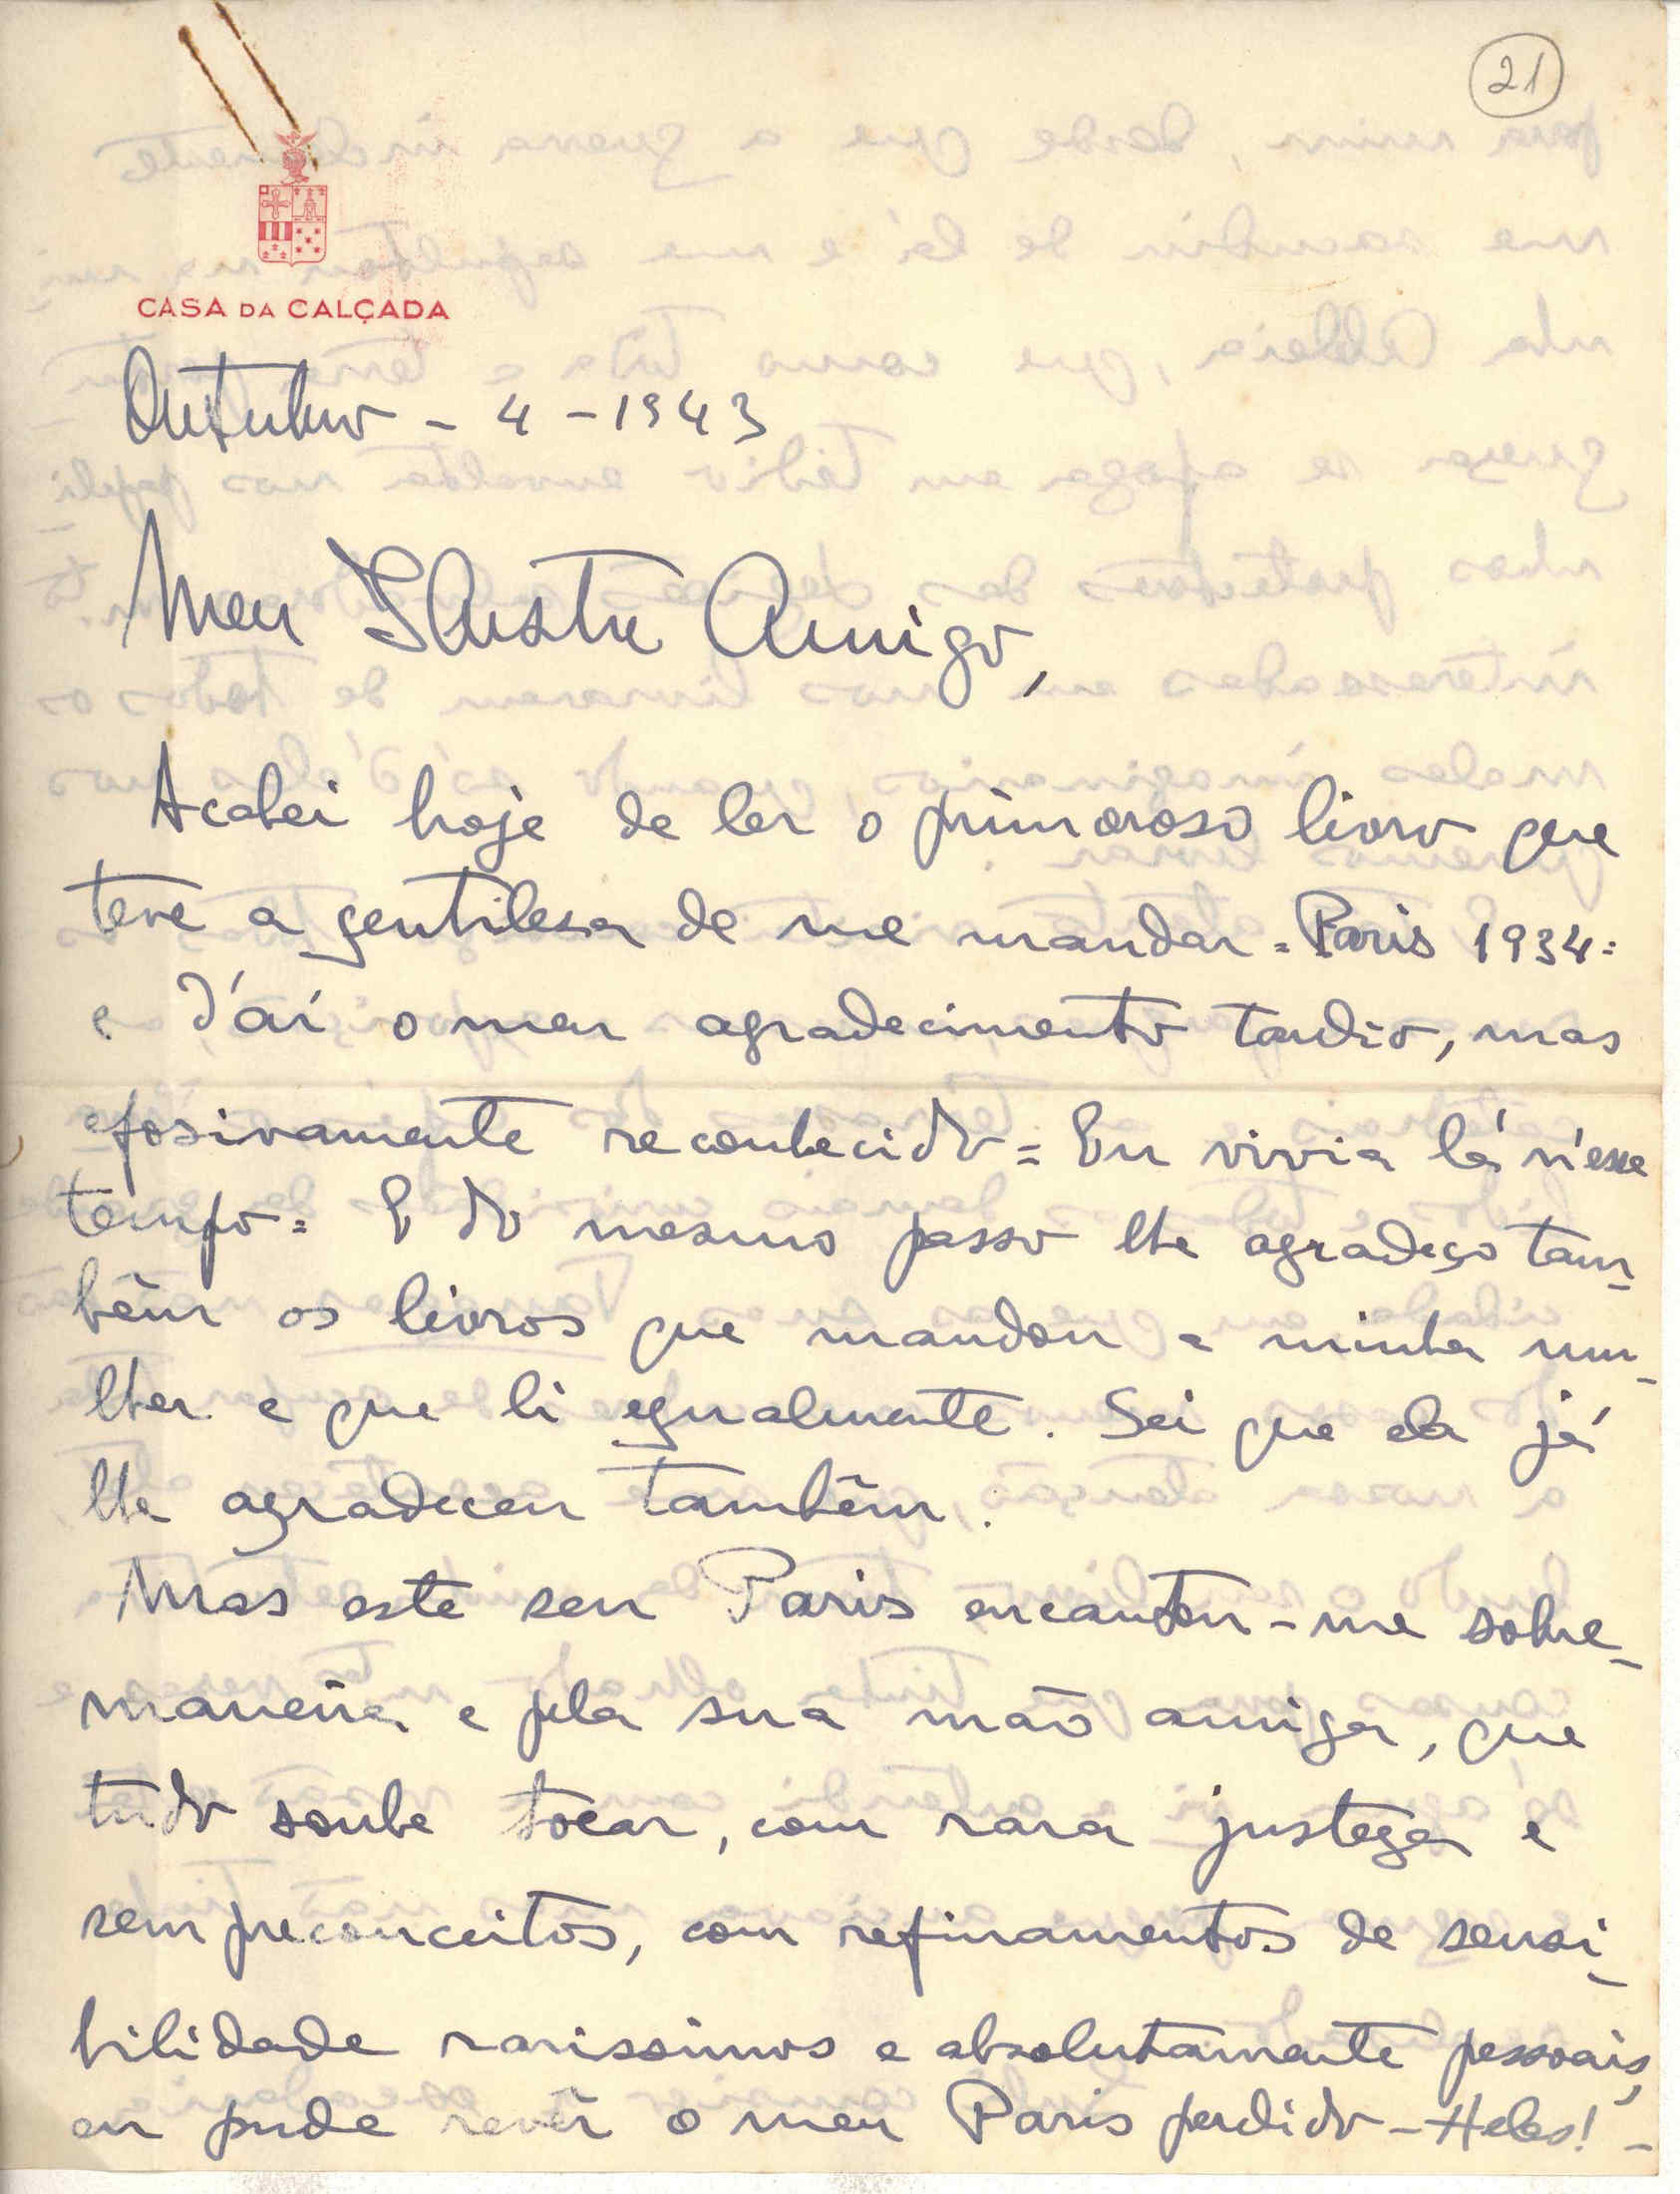 21
CASA DA CALÇADA
Outubro - 4 - 1943
Meu Illustre Amigo,
Acabei hoje de ler o primoroso livro que
teve a gentilesa de me mandar = Paris 1934 =
e d'aí o meu agradecimento tardio, mas
efosivamente reconhecido = Eu vivia lá n'esse
tempo = E do mesmo passo lhe agradeço tam-
bêm os livros que mandou a minha mu-
lher e que li egualmente. Sei que ela já
lhe agradeceu tambêm.
Mas este seu Paris encantou-me sobre-
maneira e pela sua mão amiga, que
tudo soube tocar, com rara justeza e
sem preconceitos, com refinamentos de sensi-
bilidade rarissimos e absolutamente pessoais,
eu pude revêr o meu Paris perdido - Helas! -